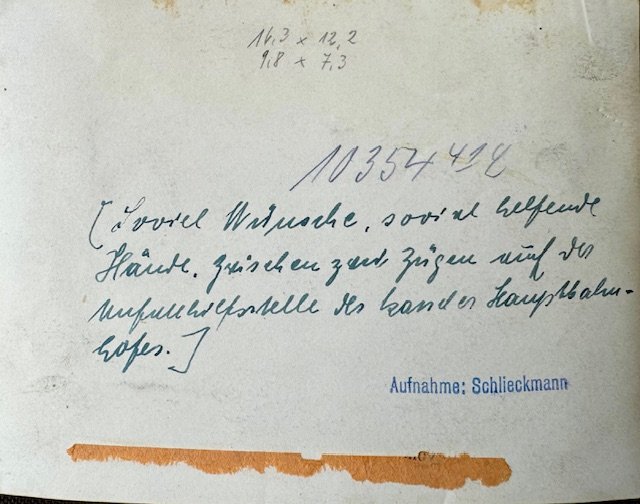 16,3 x 12,2
9,8 x 7,3
10354 412
[Soviel Wünsche, soviel helfende
Hände. Zwischen zwei Zügen auf der
Unfallhilfsstelle des Hauptbahn-
hofes.]
Aufnahme: Schlieckmann